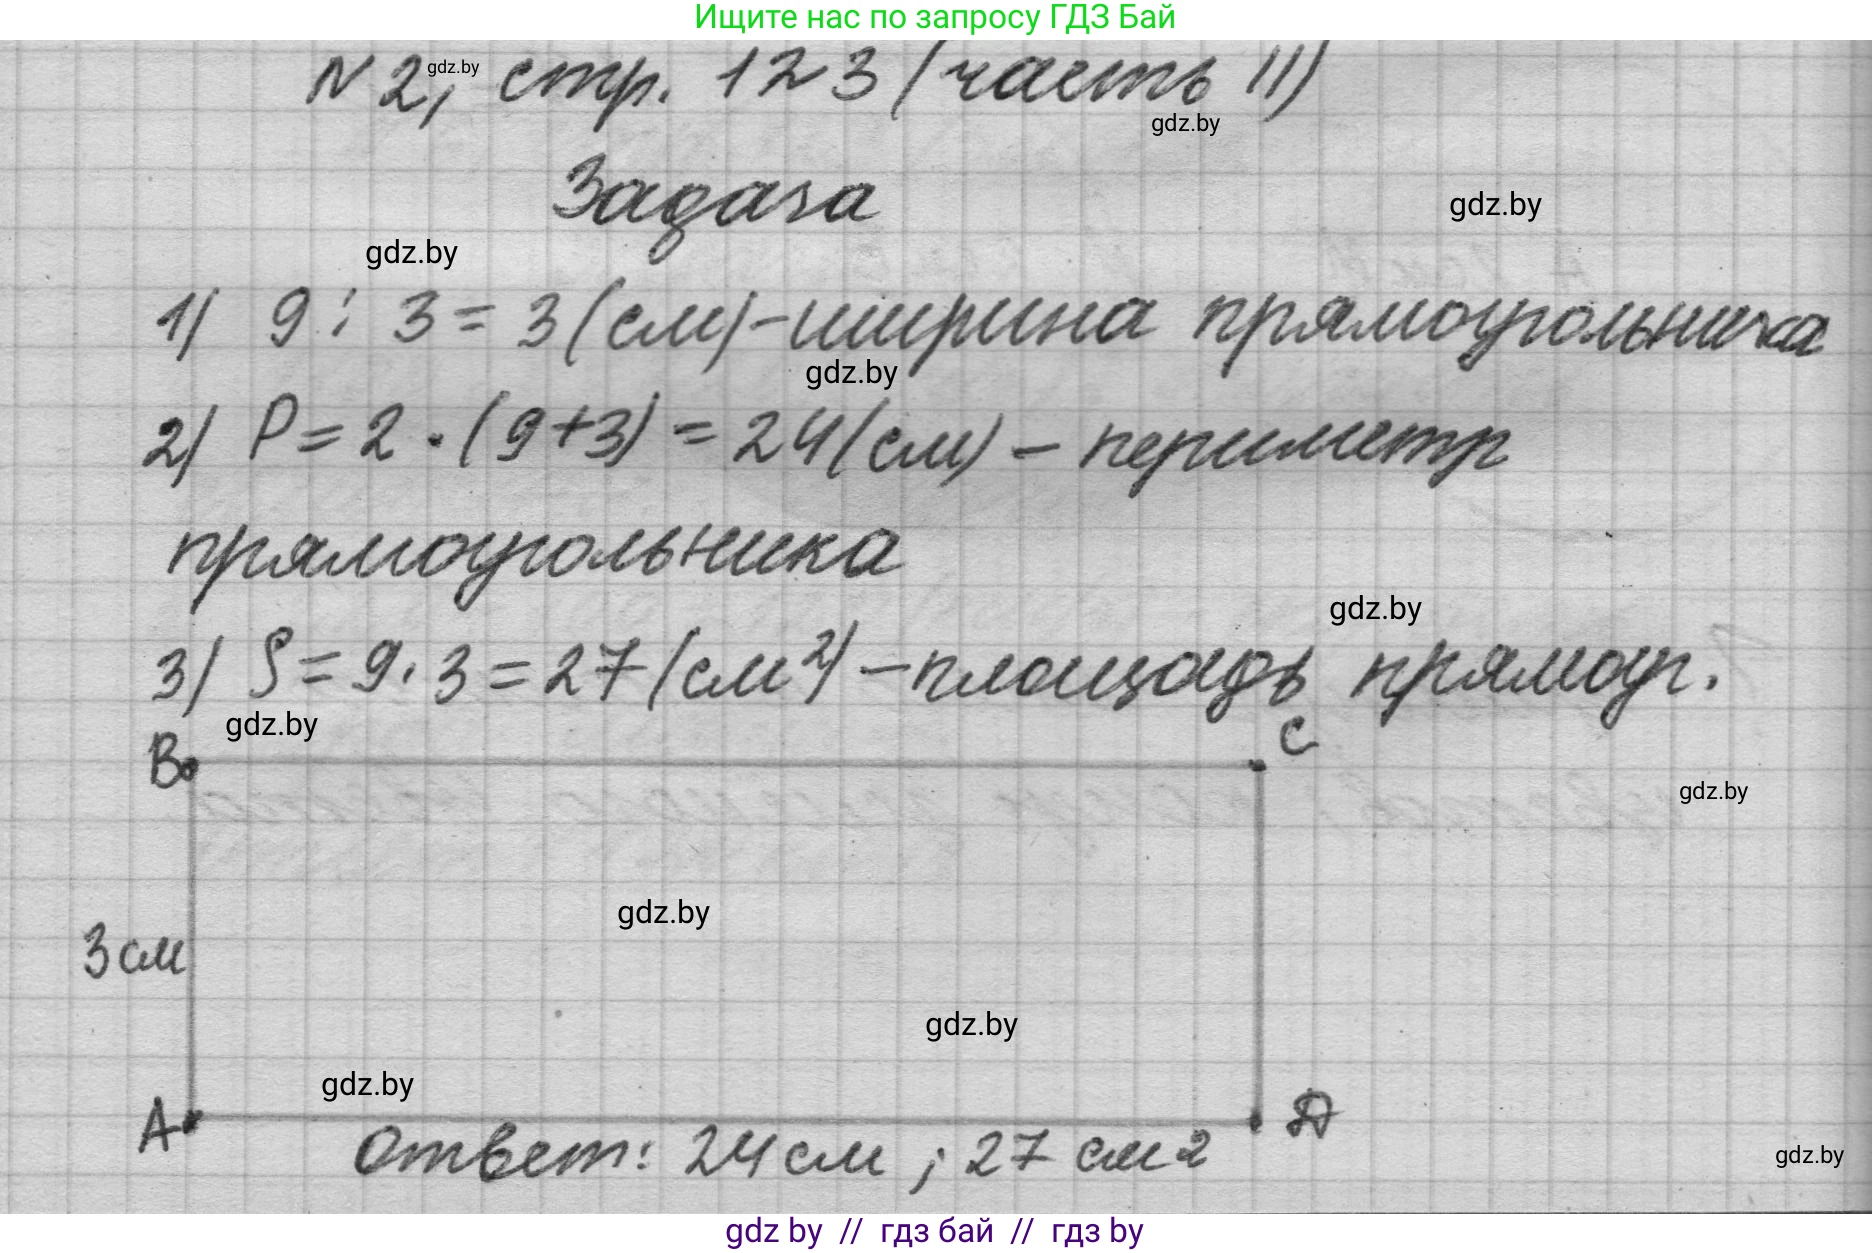 Ищите нас по запросу ГДЗ Бай
N 2, стр. 123 (часть II)
gdz.by
gdz.by
Задача
gdz.by
gdz.by
1) 9 : 3 = 3 (см) - ширина прямоугольника
gdz.by
2) P = 2 · (9+3) = 24 (см) - периметр
прямоугольника
gdz.by
3) S = 9 · 3 = 27 (см²) - площадь прямоуг.
gdz.by
B C
gdz.by
gdz.by
3 см
gdz.by
gdz.by
A D
Ответ: 24 см ; 27 см²
gdz.by
gdz by // гдз бай // гдз by